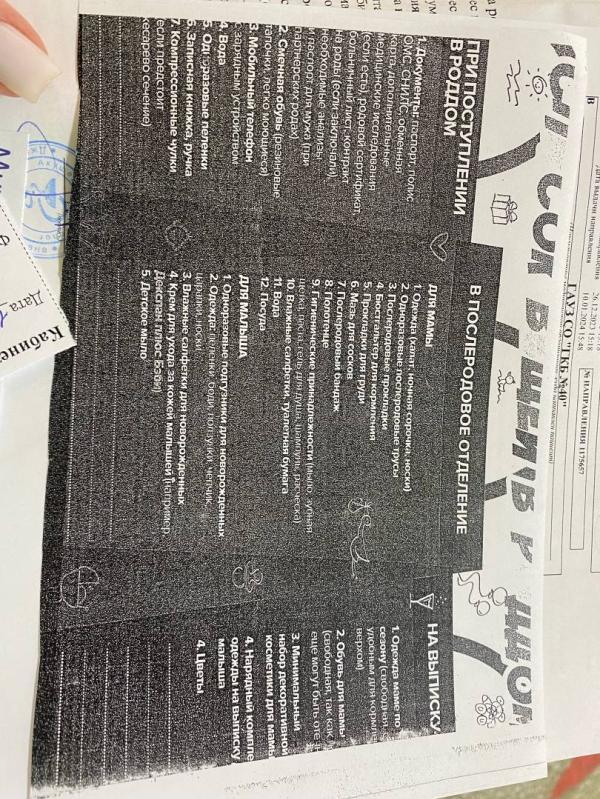 СПИСОК ВЕЩЕЙ В РОДДОМ
ПРИ ПОСТУПЛЕНИИ
В РОДДОМ
1. Документы: паспорт, полис
ОМС, СНИЛС, обменная
карта, дополнительные
медицинские исследования
(если есть), родовой сертификат,
больничный лист, контракт
на роды (если заключали)
паспорт для мужа (при
партнерских родах)
2. Сменная обувь (резиновые
тапочки, легко моющиеся)
3. Мобильный телефон
с зарядным устройством
4. Вода
5. Одноразовые пеленки
6. Записная книжка, ручка
7. Компрессионные чулки
(если предстоит
кесарево сечение)
В ПОСЛЕРОДОВОЕ ОТДЕЛЕНИЕ
ДЛЯ МАМЫ
1. Одежда (халат, ночная сорочка, носки)
2. Одноразовые послеродовые трусы
3. Послеродовые прокладки
4. Бюстгальтер для кормления
5. Прокладки для груди
6. Мазь для сосков
7. Послеродовый бандаж
8. Полотенце
9. Гигиенические принадлежности (мыло, зубная
щетка, паста, гель для душа, шампунь, расческа)
10. Влажные салфетки, туалетная бумага
11. Вода
12. Посуда
ДЛЯ МАЛЫША
1. Одноразовые подгузники для новорожденных
2. Одежда: пеленки, боди, ползунки, чепчик,
царапки, носки
3. Влажные салфетки для новорожденных
4. Крем для ухода за кожей малышей (например,
Декспан плюс Бэби)
5. Детское мыло
НА ВЫПИСКУ
1. Одежда маме по
сезону (свободная, с
удобным для кормл
верхом)
2. Обувь для мамы
(свободная, так как
еще могут быть оте
3. Минимальный
набор декоративной
косметики для мамы
4. Нарядный компле
одежды на выписку
малыша
4. Цветы
Дата выдачи направления
26.12.2023 15:18
10.01.2024 15:48
ГАУЗ СО "ГКБ №40"
№ НАПРАВЛЕНИЯ 1175657
Кабине
Дата